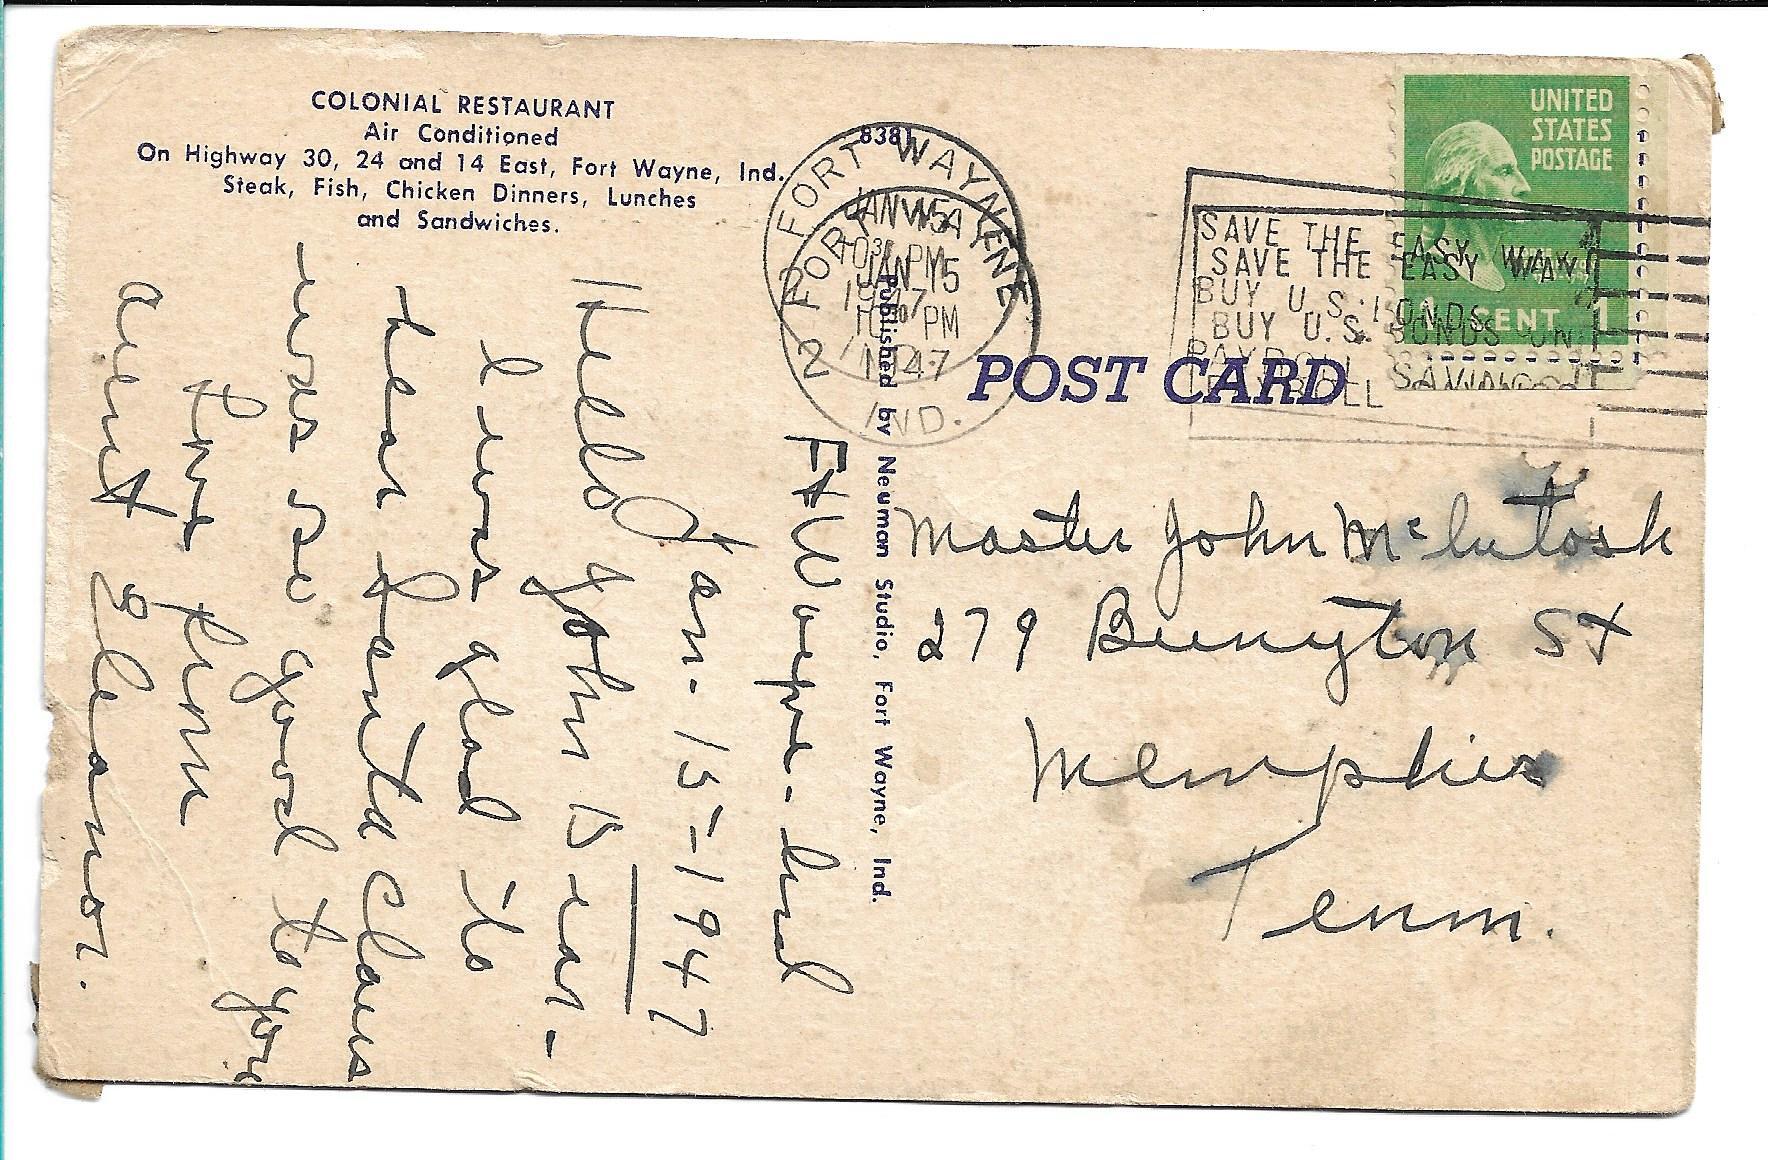 COLONIAL RESTAURANT
Air Conditioned
On Highway 30, 24 and 14 East, Fort Wayne, Ind.
Steak, Fish, Chicken Dinners, Lunches
and Sandwiches.
8381
Ft Wayne - Ind
Jan - 15 - 1947
Hello John Dear -
I was glad to
hear Santa Claus
was so good to you
Love from
Aunt Eleanor.
Published by Neuman Studio, Fort Wayne, Ind.
POST CARD
FORT WAYNE 2
JAN 15
10 30 PM
1947
IND.
FORT WAYNE 2
JAN 15
PM
1947
IND.
SAVE THE EASY WAY
BUY U.S. BONDS
PAYROLL SAVINGS
SAVE THE EASY WAY
BUY U.S. BONDS ON
PAYROLL
UNITED
STATES
POSTAGE
1 CENT 1
Master John McIntosh
279 Buntyn St
Memphis
Tenn.